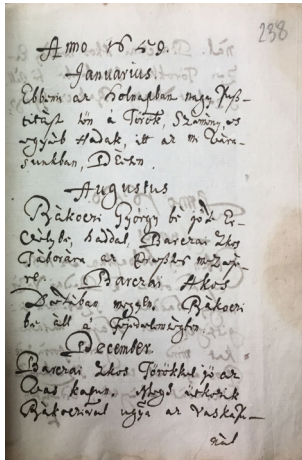 238
Anno 1659.
Januarius.
Ebben az holnapban nagy Pusz-
titást tön a Török,
egyéb Hadak, itt az m Váro-
sunkban, Désen.
Augustus
Rákoczi György bé jöd Er-
délybe, haddal, Barczai Akos
Táborára az
Barczai Akos
Dévában megyen. Rákoczi
be áll a Fejedelemségben.
December.
Barczai Akos Törökkel jö az
Vas kapun. Megis ütközik
Rákoczival ugyan az Vaskapu-
nál